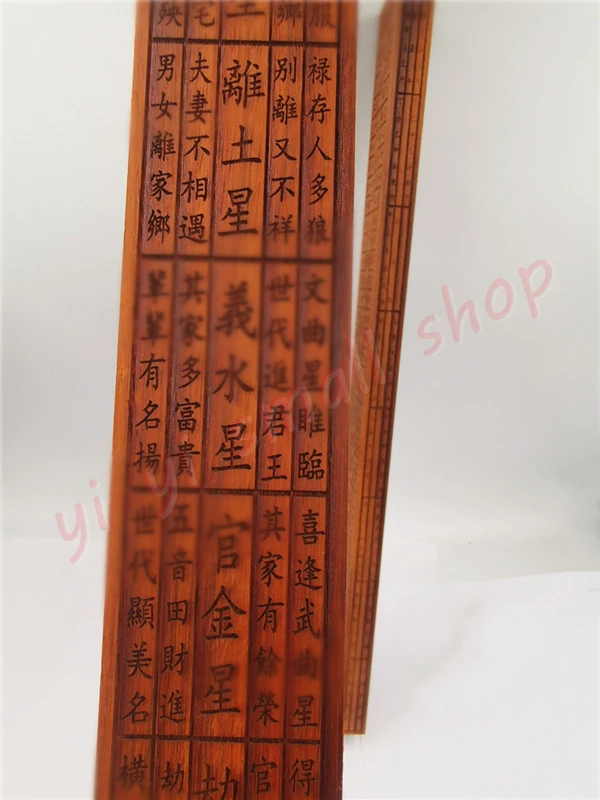 服
鄉
星
宅
殃
禄存人多狼
别離又不祥
離土星
夫妻不相遇
男女離家鄉
文曲星睢臨
世代進君王
義水星
其家多富貴
軰軰有名揚
喜逢武曲星
其家有餘榮
官金星
五音田財進
世代顯美名
得
官
劫
劫
橫
yi yi small shop